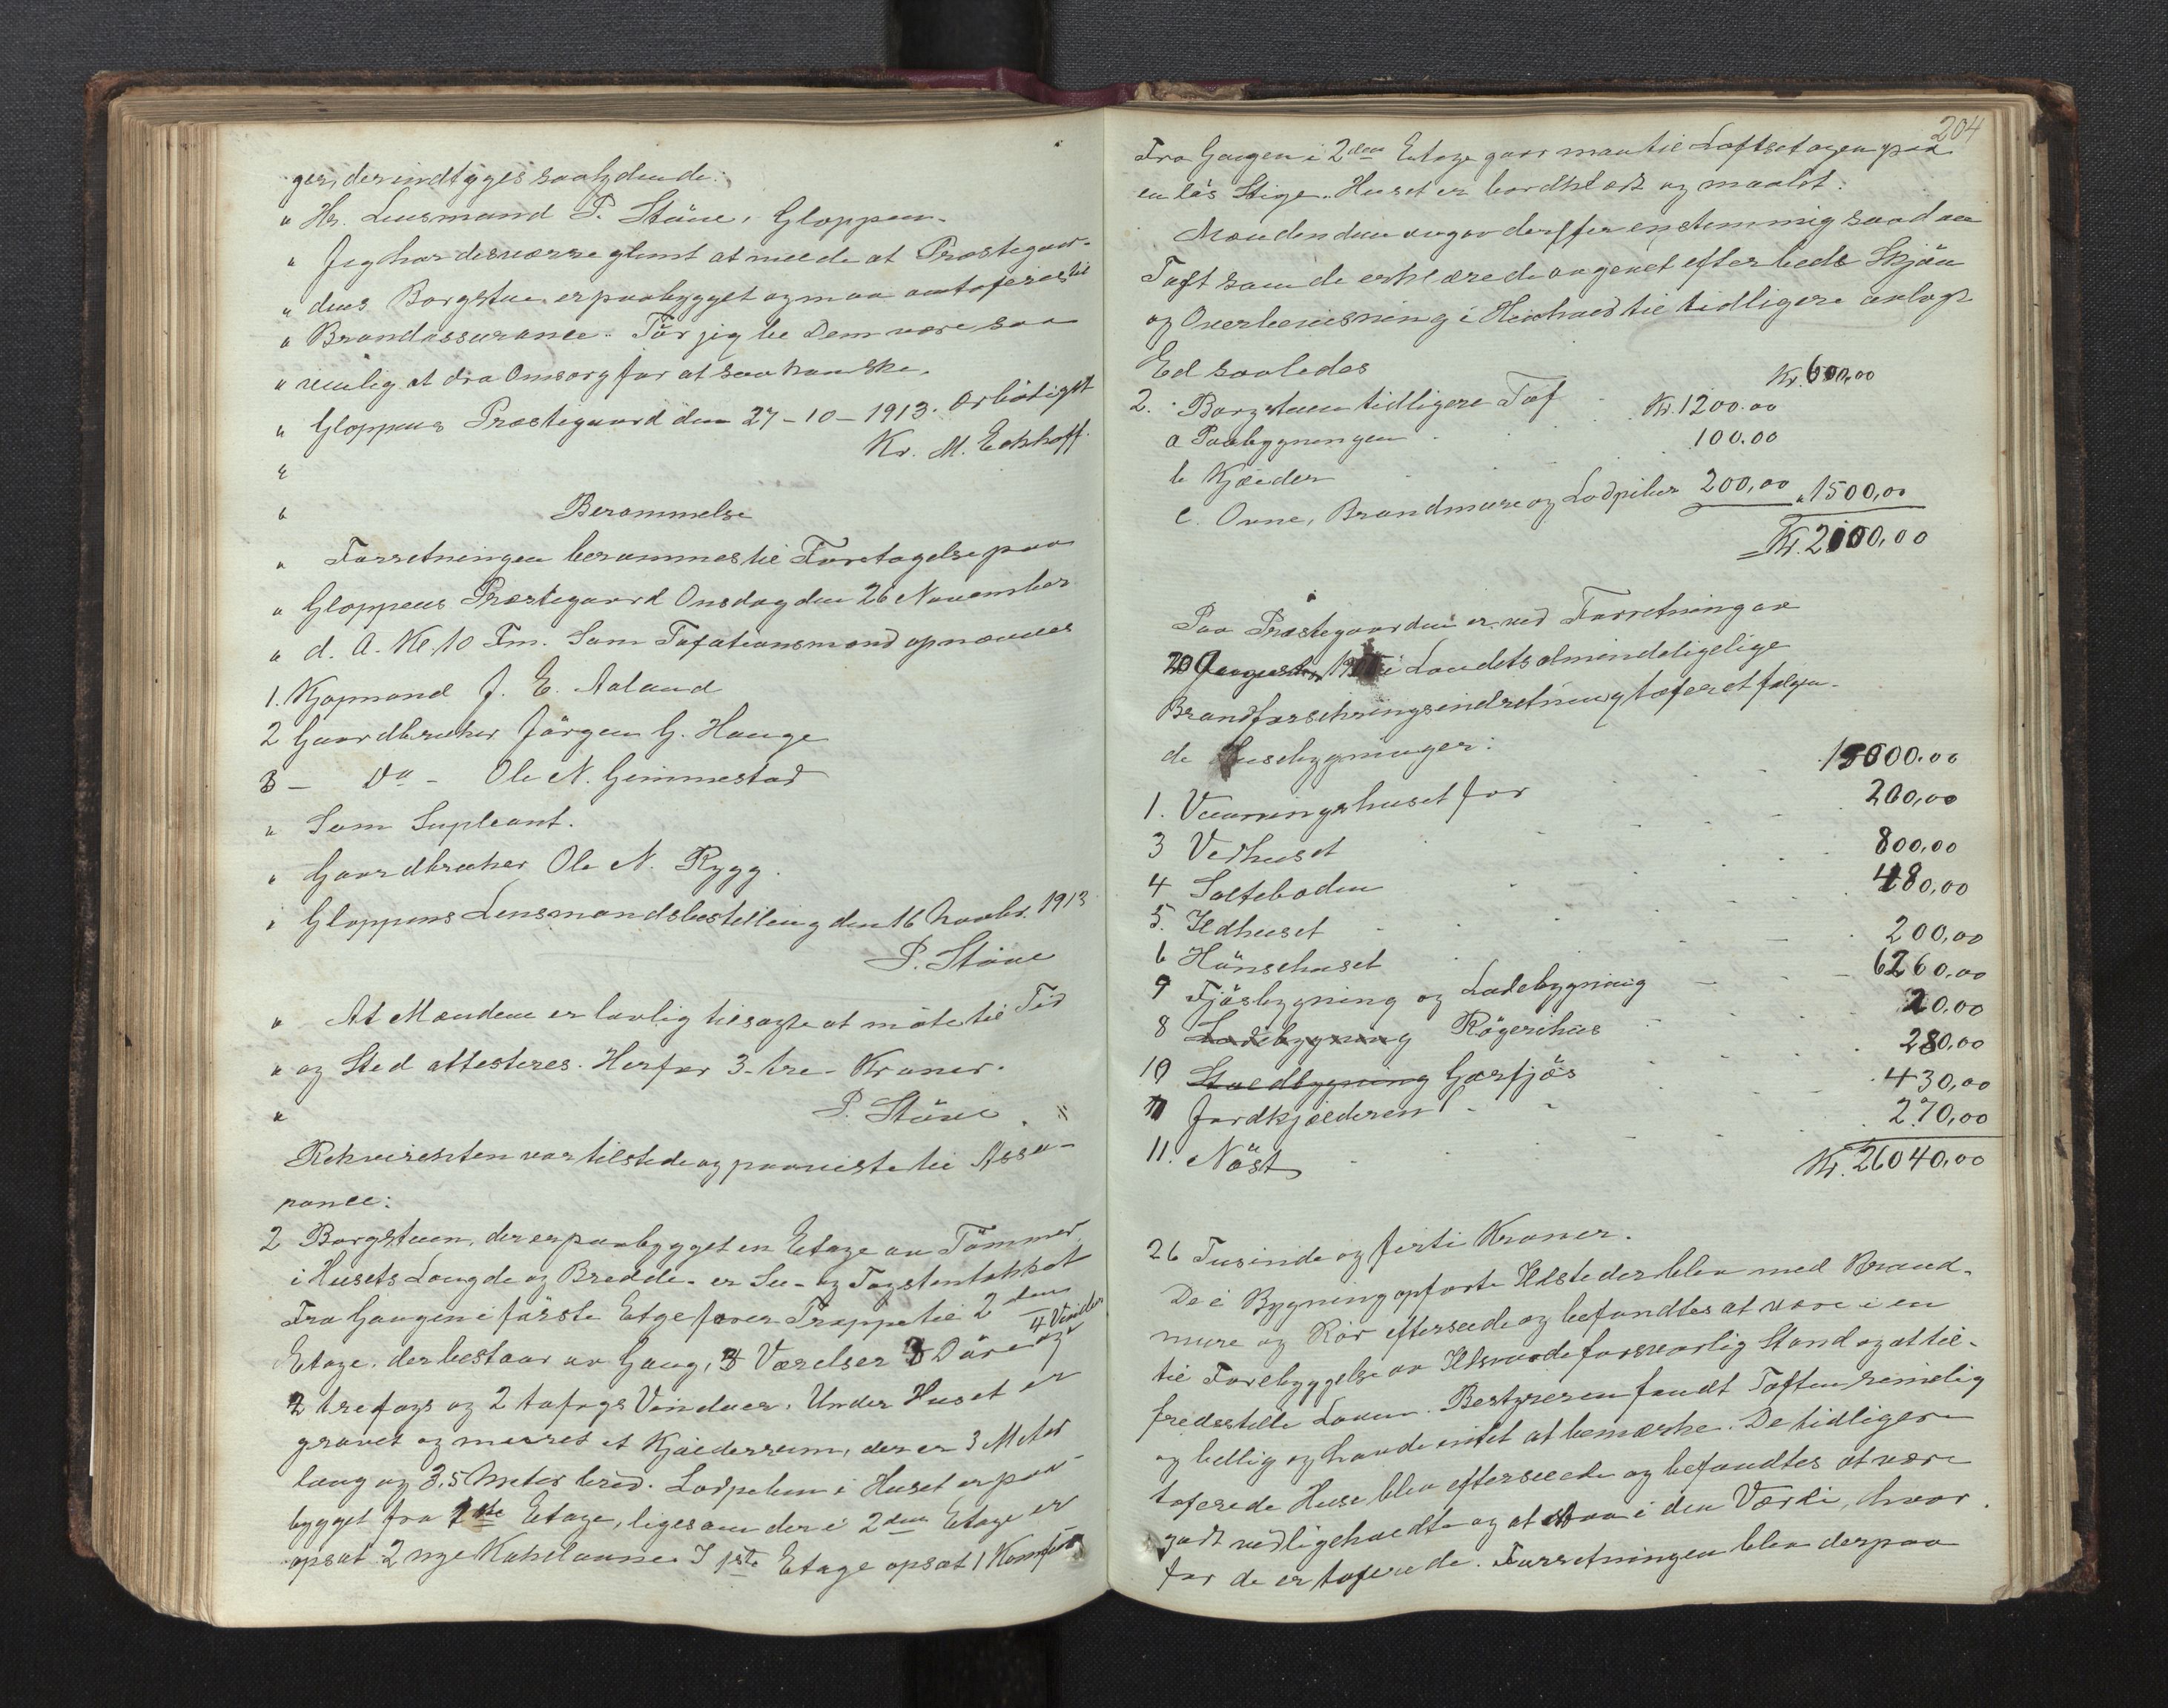 ger, der indtages saalydende:
" Hr. Lensmand P. Støve, Gloppen.
" Jeg har desværre glemt at melde at Præstegaar-
" dens Borgstue er paabygget og maa omtaxeres til
" Brandassurance. Tör jeg be Dem være saa
" venlig at dra Omsorg for at saa kan ske.
" Gloppens Præstegaard den 27-10-1913. Ærbödigst
" Kr. M. Eckhoff.
" Berammelse
" Forretningen berammes til Foretagelse paa
" Gloppens Præstegaard Onsdag den 26 November
" d. A. Kl. 10 Fm. Som Taxationsmænd opnævnes
1. Kjøpmand J. E. Aaland
2 Gaardbruker Jörgen G. Hauge
3 - Do - Ole N. Gimmestad
" Som Supleant.
" Gaardbruker Ole N. Rygg.
" Gloppens Lensmandsbestilling den 16 Novbr. 1913
P. Stöve
" At Mændene er lovlig tilsagte at möte til Tid
" og Sted attesteres. Herfor 3-tre-Kroner.
" P. Stöve "
Rekvirenten var tilstede og paaviste til Assu-
rance:
2 Borgstuen, der er paabygget en Etage av Tömmer
i Husets Længde og Bredde - er Su- og Tagstentækket
Fra Gangen i förste Etge fører Trappe til 2den
Etage, der bestaar av Gang, 3 Værelser 3 Döre og 4 Vinduer
2 trefags og 2 tofags Vinduer. Under Huset er
gravet og muret et Kjælderrum, der er 3 Meter
lang og 3,5 Meter bred. Lodpiben i Huset er paa-
bygget fra 1ste Etage, ligesom der i 2den Etage er
opsat 2 nye Kakelovne. I 1ste Etage opsat 1 Komfür
204
Fra Gangen i 2den Etage gaar man til Loftsetagen paa
en lös Stige. Huset er bordklædt og maalet.
Mændene avgav derefter enstemmig saadan
Taxt som de erklærede avgivet efter beds Skjön
og Overbevisning i Henhold til tidligere avlagt
Ed saaledes
2. Borgstuen tidligere Tax Kr. 600,00
a Paabygningen Kr. 1200.00
b Kjælder 100.00
c. Ovne, Brandmure og Lodpiber 200,00 " 1500,00
Kr. 2100,00
Paa Præstegaarden er ved Forretning av
20 August i Landets almindeligelige
Brandforsikringsindretning taxeret følgen-
de Husebygninger:
1. Vaaningshuset for 15000.00
3 Vedhuset 200,00
4 Salteboden 800,00
5. Ildhuset 480,00
6 Hönsehuset 200,00
7 Fjösbygning og Ladebygning 6260,00
8 Ladebygning Rögerihus 20.00
10 Staldbygning Garfjös 280,00
11 Jordkjælderen 430,00
11. Nöst 270,00
Kr. 26040,00
26 Tusinde og firti Kroner.
De i Bygning opførte Ildsteder blev med Brand-
mure og Rör efterseede og befandtes at være i en
til Forebyggelse av Ildsvaade forsvarlig Stand og at til-
fredsstille Loven. Bestyreren fandt Taxten rimelig
og billig og havde intet at bemærke. De tidligere
taxerede Huse blev efterseede og befandtes at være
godt vedligeholdte og at staa i den Værdi, hvor
for de er taxerede. Forretningen blev derpaa